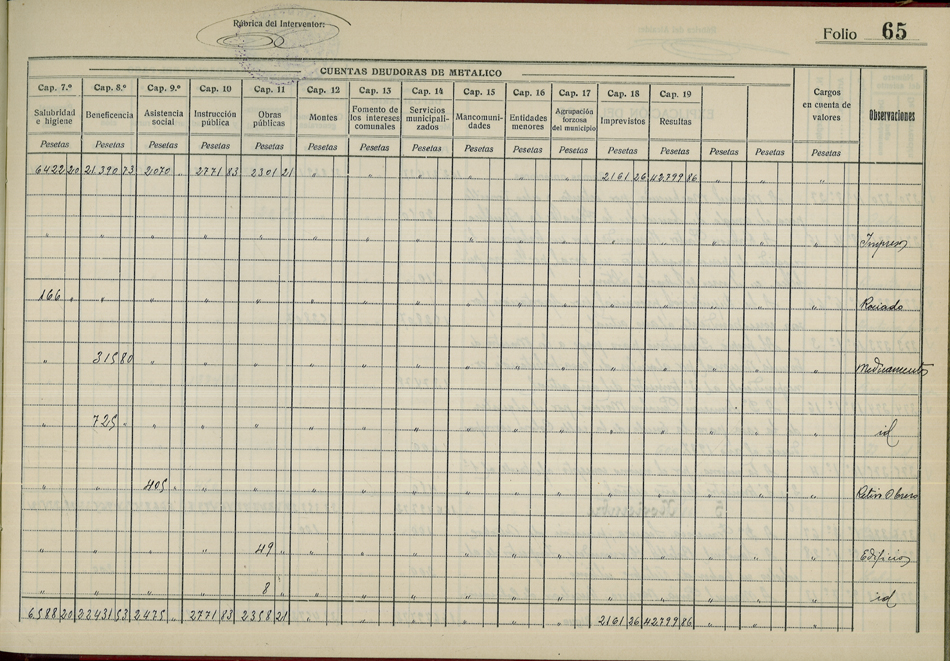 Rúbrica del Interventor:
Folio 65
CUENTAS DEUDORAS DE METALICO
Cap. 7.º Cap. 8.º Cap. 9.º Cap. 10 Cap. 11 Cap. 12 Cap. 13 Cap. 14 Cap. 15 Cap. 16 Cap. 17 Cap. 18 Cap. 19 Cargos en cuenta de valores Observaciones
Salubridad e higiene Beneficencia Asistencia social Instrucción pública Obras públicas Montes Fomento de los intereses comunales Servicios municipalizados Mancomunidades Entidades menores Agrupación forzosa del municipio Imprevistos Resultas
Pesetas Pesetas Pesetas Pesetas Pesetas Pesetas Pesetas Pesetas Pesetas Pesetas Pesetas Pesetas Pesetas Pesetas Pesetas Pesetas
6422 20 21.390 73 2070 „ 2771 83 2301 21 „ „ „ „ „ „ 2161 26 42799 86 „ „ „
„ „ „ „ „ „ „ „ „ „ „ „ „ „ „ „ Impresos
166 „ „ „ „ „ „ „ „ „ „ „ „ „ „ „ „ Rociado
„ 315 80 „ „ „ „ „ „ „ „ „ „ „ „ „ „ Medicamentos
„ 725 „ „ „ „ „ „ „ „ „ „ „ „ „ „ „ id
„ „ 405 „ „ „ „ „ „ „ „ „ „ „ „ „ „ Retiro Obrero
„ „ „ „ 49 „ „ „ „ „ „ „ „ „ „ „ „ Edificios
„ „ „ „ 8 „ „ „ „ „ „ „ „ „ „ „ „ id
6588 20 22431 53 2475 „ 2771 83 2358 21 „ „ „ „ „ „ 2161 26 42799 86 „ „ „